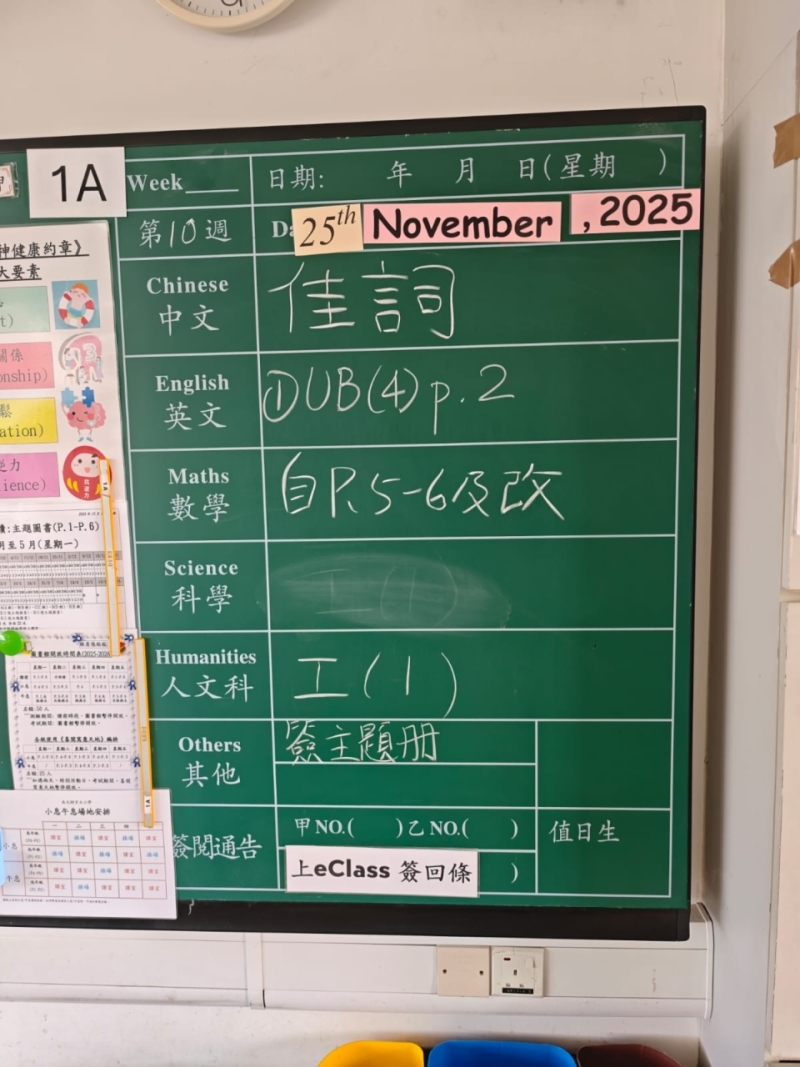 1A
Week____ 日期: 年 月 日(星期 )
第10週 Da 25th November , 2025
Chinese
中文
佳詞
English
英文
①UB(4)p.2
Maths
數學
自P.5-6及改
Science
科學
Humanities
人文科
工(1)
Others
其他
簽主題册
簽閱通告
甲NO.( )乙NO.( )
上eClass 簽回條 )
值日生
神健康約章》
大要素
t)
關係
onship)
鬆
ation)
逆力
ience)
讀:主題圖書(P.1-P.6)
月至5月(星期一)
小息午息場地安排
一 二 三 四 五
小息
午息